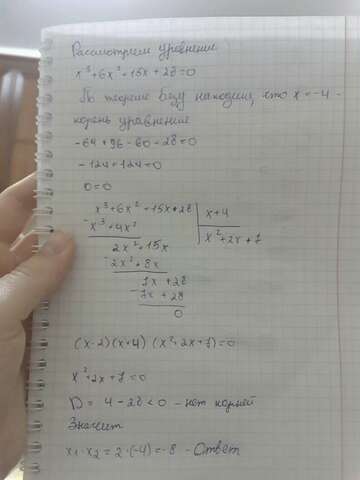 Рассмотрим уравнение
x³+6x²+15x+28=0
По теореме Безу находим, что x=-4 -
корень уравнения
-64+96-60+28=0
-124+124=0
0=0
x³+6x²+15x+28 | x+4
- x³+4x² x²+2x+7
2x²+15x
- 2x²+8x
7x+28
- 7x+28
0
(x-2)(x+4)(x²+2x+7)=0
x²+2x+7=0
D= 4-28<0 - нет корней
Значит
x₁·x₂=2·(-4)=-8 - Ответ